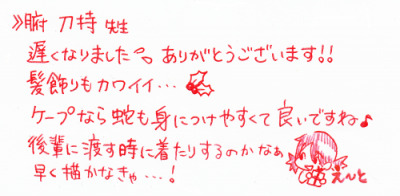 》腑 刀持 先生
遅くなりました ありがとうございます!!
髪飾りもカワイイ…
ケープなら蛇も身につけやすくて良いですね♪
後輩に渡す時に着たりするのかなぁ
早く描かなきゃ…!
え〜と